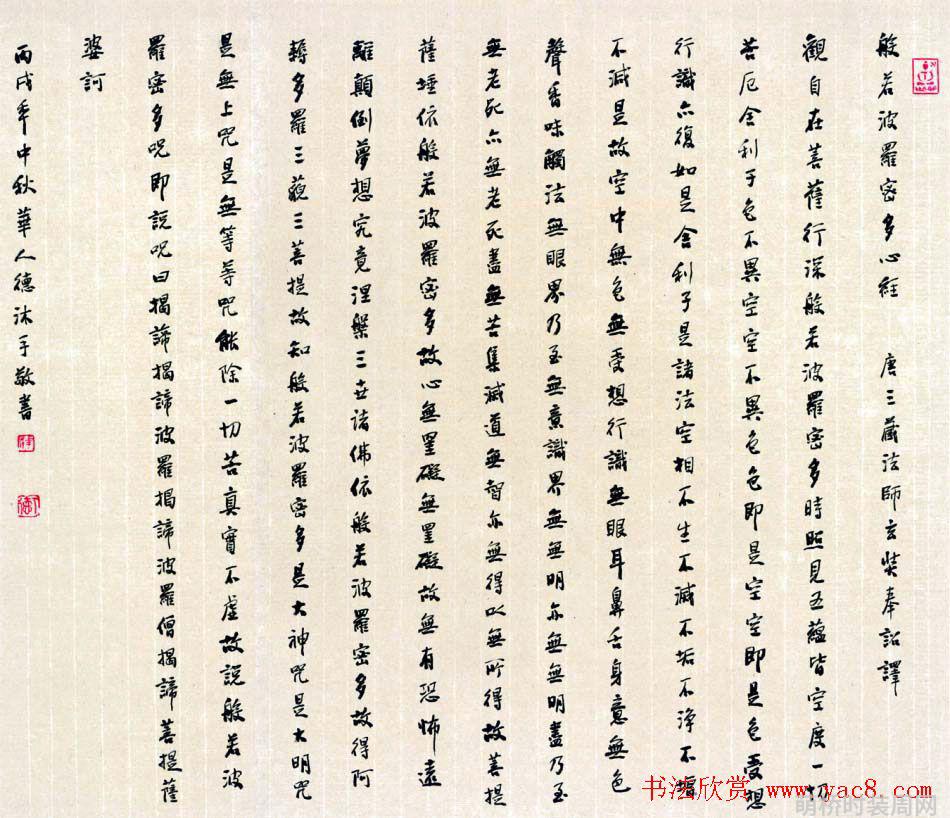 般若波羅密多心經 唐三藏法師玄奘奉詔譯
觀自在菩薩行深般若波羅密多時照見五蘊皆空度一切
苦厄舍利子色不異空空不異色色即是空空即是色受想
行識亦復如是舍利子是諸法空相不生不滅不垢不淨不增
不減是故空中無色無受想行識無眼耳鼻舌身意無色
聲香味觸法無眼界乃至無意識界無無明亦無無明盡乃至
無老死亦無老死盡無苦集滅道無智亦無得以無所得故菩提
薩埵依般若波羅密多故心無罣礙無罣礙故無有恐怖遠
離顛倒夢想究竟涅槃三世諸佛依般若波羅密多故得阿
耨多羅三藐三菩提故知般若波羅密多是大神咒是大明咒
是無上咒是無等等咒能除一切苦真實不虛故說般若波
羅密多咒即說咒曰揭諦揭諦波羅揭諦波羅僧揭諦菩提薩
婆訶
丙戌年中秋華人德沐手敬書
书法欣赏 www.yac8.com
萌桥时装周网